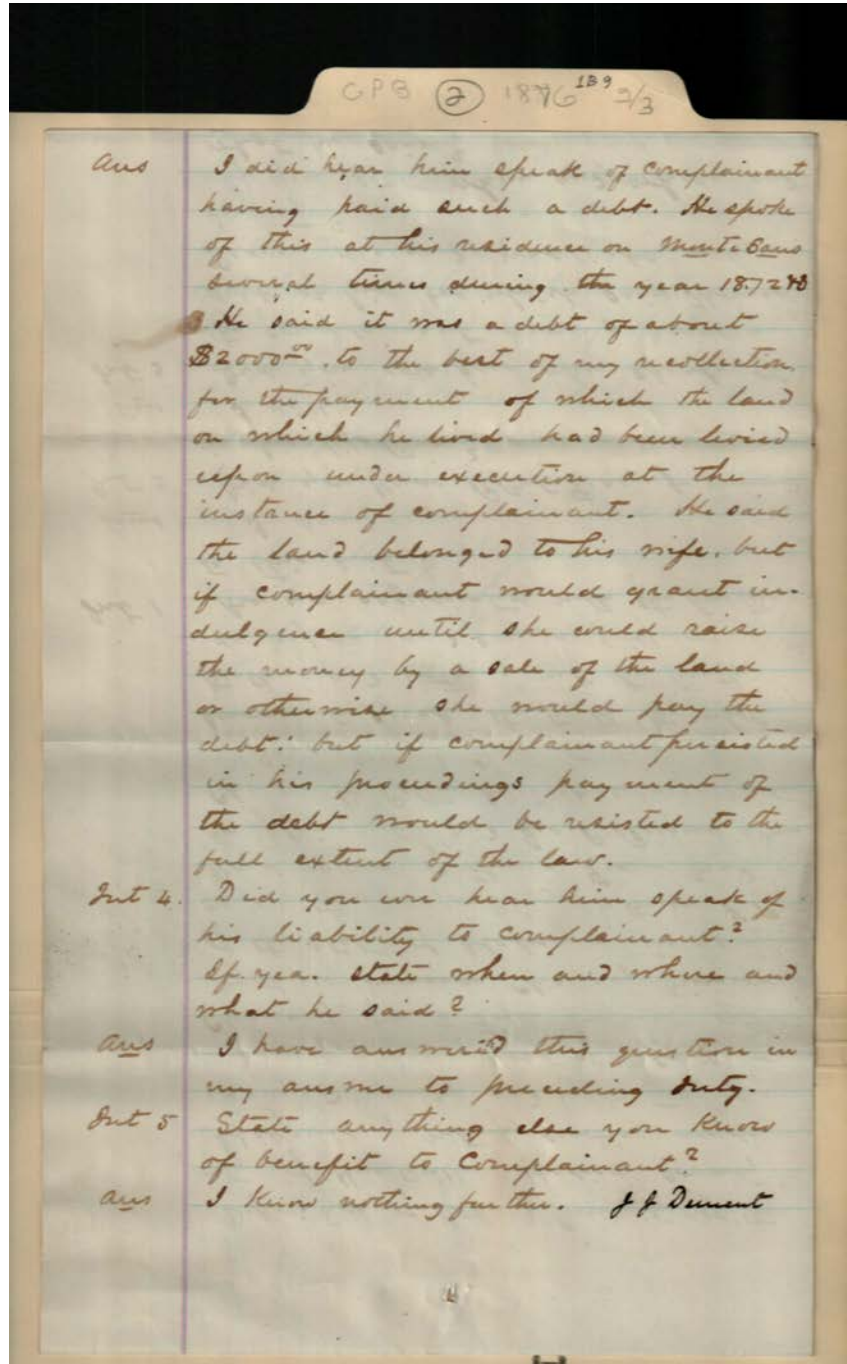 GPB 2 1876 1B9 2/3
Ans I did hear him speak of complainant
having paid such a debt. He spoke
of this at his residence on Monte Sano
several times during the year 1872 &
3 He said it was a debt of about
$2000.00 to the best of my recollection
for the payment of which the land
on which he lived had been levied
upon under execution at the
instance of complainant. He said
the land belonged to his wife, but
if complainant would grant in-
dulgence until she could raise
the money by a sale of the land
or otherwise she would pay the
debt: but if complainant persisted
in his proceedings payment of
the debt would be resisted to the
full extent of the law.
Int 4. Did you ever hear him speak of
his liability to complainant?
If yea. state when and where and
what he said?
Ans I have answered this question in
my answer to preceding Inty.
Int 5 State anything else you know
of benefit to Complainant?
Ans I know nothing further. J J Dement